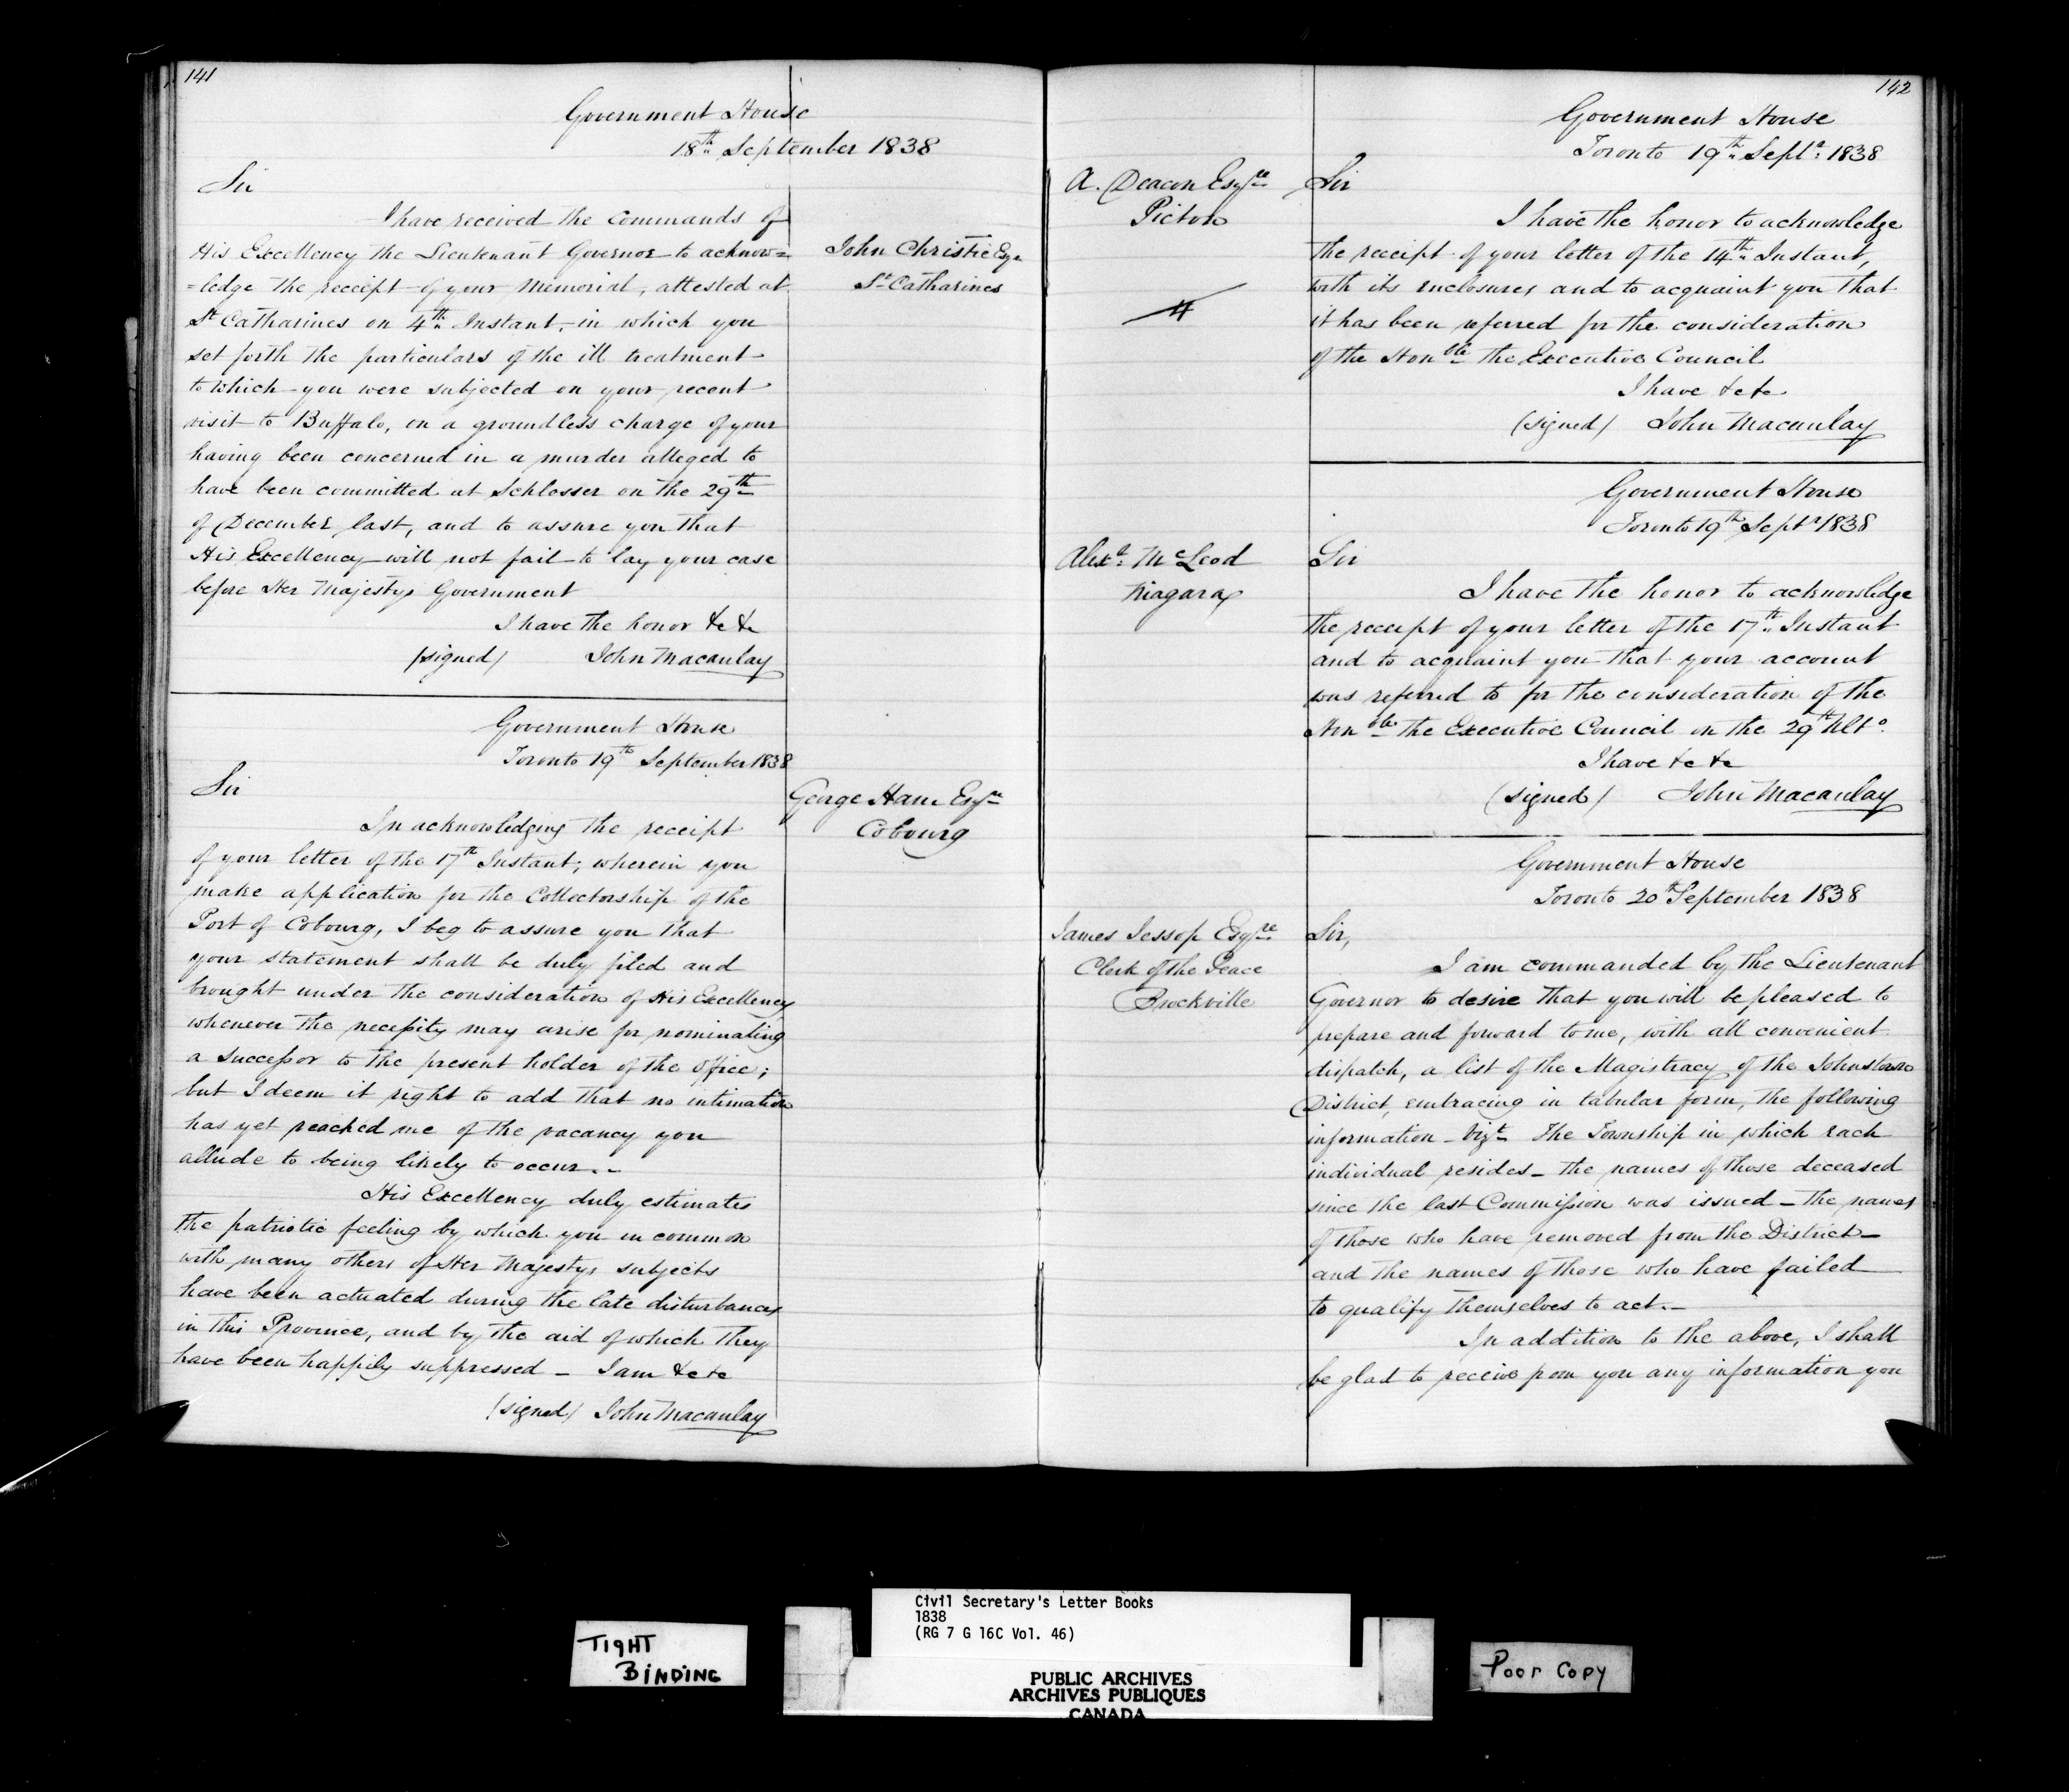 141
Government House
18th September 1838
Sir
I have received the commands of
His Excellency the Lieutenant Governor to acknow=
=ledge the receipt of your Memorial, attested at
St Catharines on 4th Instant, in which you
set forth the particulars of the ill treatment
to which you were subjected on your recent
visit to Buffalo, on a groundless charge of your
having been concerned in a murder alleged to
have been committed at Schlosser on the 29th
of December last, and to assure you that
His Excellency will not fail to lay your case
before Her Majestys Government
I have the honor &c &c
(signed) John Macaulay
John Christie Esqr
St Catharines
Government House
Toronto 19th September 1838
Sir
In acknowledging the receipt
of your letter of the 17th Instant; wherein you
make application for the Collectorship of the
Port of Cobourg, I beg to assure you that
your statement shall be duly filed and
brought under the consideration of His Excellency
whenever the necessity may arise for nominating
a Successor to the present holder of the office;
but I deem it right to add that no intimation
has yet reached me of the vacancy you
allude to being likely to occur.-
His Excellency duly estimates
the patriotic feeling by which you in common
with many others of Her Majestys subjects
have been actuated during the late disturbances
in this Province, and by the aid of which they
have been happily suppressed - I am &c &c
(signed) John Macaulay
George Ham Esqre
Cobourg
142
Government House
Toronto 19th Septr 1838
A. Deacon Esqre
Picton
Sir
I have the honor to acknowledge
the receipt of your letter of the 14th Instant,
with its enclosures and to acquaint you that
it has been referred for the consideration
of the Honble the Executive Council
I have &c &c
(signed) John Macaulay
Government House
Toronto 19th Septr 1838
Alexr McLeod
Niagara
Sir
I have the honor to acknowledge
the receipt of your letter of the 17th Instant
and to acquaint you that your account
was referred to for the consideration of the
Honble the Executive Council on the 29th Ulto
I have &c &c
(signed) John Macaulay
Government House
Toronto 20th September 1838
James Jessop Esqre
Clerk of the Peace
Brockville
Sir,
I am commanded by the Lieutenant
Governor to desire that you will be pleased to
prepare and forward to me, with all convenient
dispatch, a list of the Magistracy of the Johnstown
District, embracing in tabular form, the following
information - Vizt The Township in which each
individual resides - the names of those deceased
since the last Commission was issued - the names
of those who have removed from the District -
and the names of those who have failed
to qualify themselves to act.-
In addition to the above, I shall
be glad to receive from you any information you
Civil Secretary's Letter Books
1838
(RG 7 G 16C Vol. 46)
TIGHT
BINDING
PUBLIC ARCHIVES
ARCHIVES PUBLIQUES
CANADA
Poor Copy